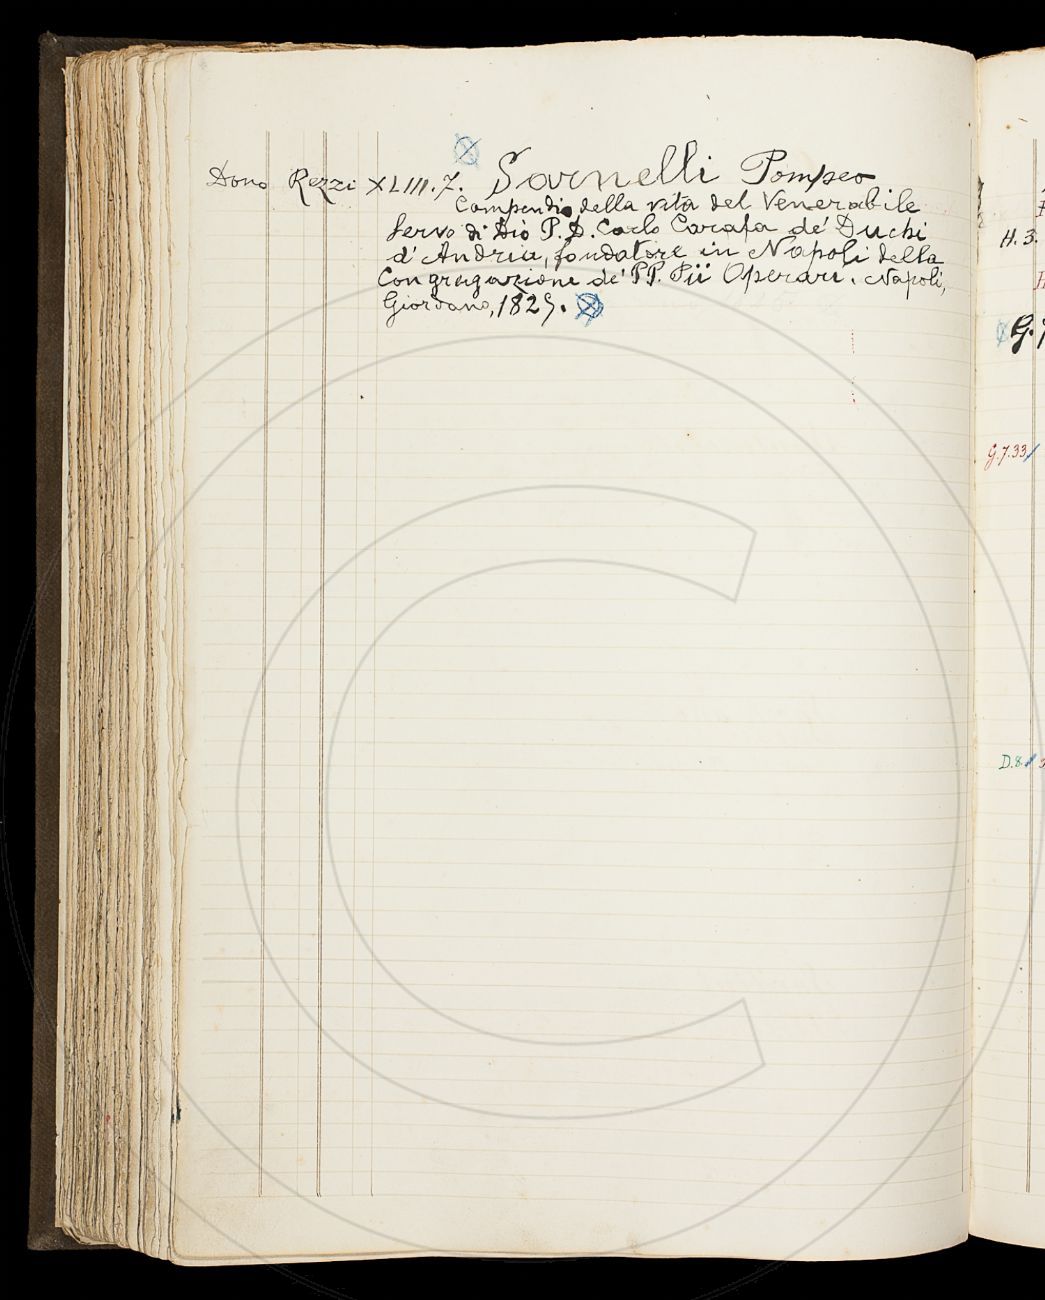 Dono Rezzi XLIII.7. Sarnelli Pompeo
Compendio della vita del Venerabile
Servo di Dio P. D. Carlo Carafa de' Duchi
d'Andria, fondatore in Napoli della
Congregazione de' PP. Pii Operarii. Napoli,
Giordano, 182
H. 3.
G. 7
G.7.33/
D.8